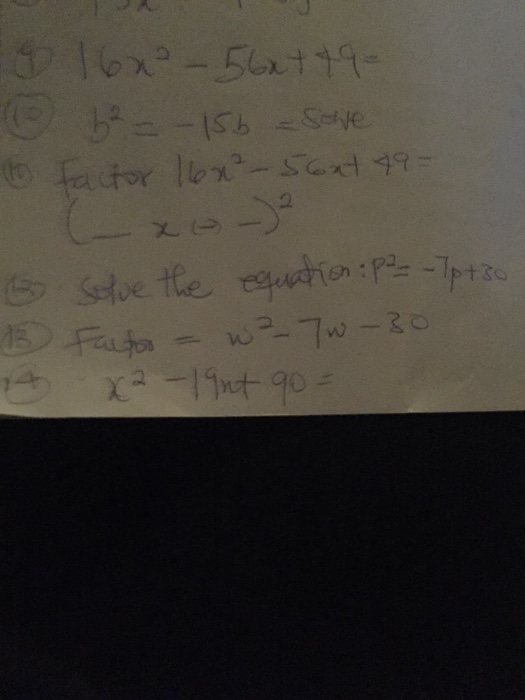 9 16x² - 56x + 49 =
10 b² = -15b = Solve
Factor 16x² - 56x + 49 =
(_ x (-) -)²
Solve the equation : p² = -7p+30
13 Factor = w² - 7w - 30
14 x² - 19x + 90 =